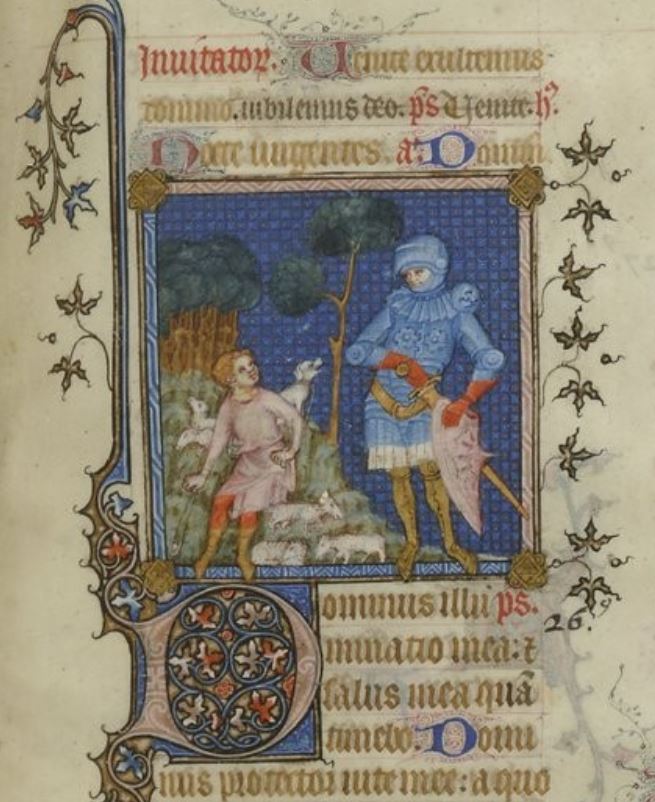 Inuitator. Venite exultemus
domino. iubilemus deo. ps Venite. h̄
Nocte surgentes. a᷎ Domin
Dominus illu ps.
26.
minatio mea: ⁊
salus mea quē
timebo. Domi
nus protector uite mee: a quo